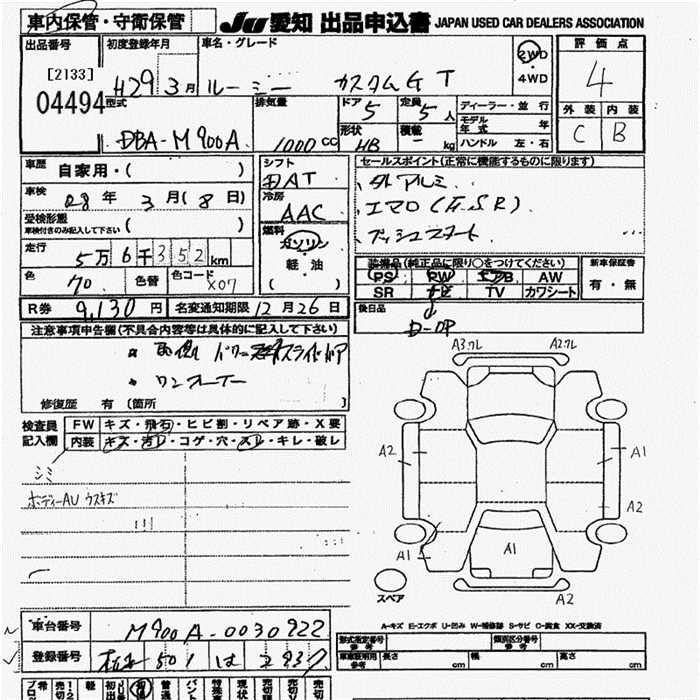 車内保管・守衛保管
JU 愛知 出品申込書 JAPAN USED CAR DEALERS ASSOCIATION
出品番号 初度登録年月 車名・グレード 評価点
[2133] H29 3月 ルーミー カスタムG T 2WD・4WD 4
04494 型式 排気量 ドア 5 定員 5人 ディーラー・並行 外装 内装
DBA-M900A 1000cc 形状 HB 積載 - kg モデル年式 年 C B
ハンドル 左・右
車歴 自家用・( ) シフト セールスポイント(正常に機能するものに限ります)
車検 28年 3月(8日) AT 外アルミ
受検形態 冷房 AAC エアロ(F.S.R)
車検付きのみ記入して下さい ( ) 燃料 ガソリン プッシュスタート
走行 5万6千352km 軽・油
色 70 色替 色コード X07 ( )
装備品(純正品に限り○をつけてください) 新車保証書
PS PW エアB AW 有・無
SR ナビ TV カワシート
R券 9,130円 名変通知期限 12月26日 後日品
D-OP
注意事項申告欄(不具合内容等は具体的に記入して下さい)
パワースライドドア
ワンオーナー
修復歴 有(箇所 )
検査員記入欄 FW キズ・飛石・ヒビ割・リペア跡・X要
内装 キズ・汚レ・コゲ・穴・スレ・キレ・破レ
シミ
ボディーAU ウスキズ
A3ワレ A2ワレ
A2 A1
A2
A1 A1
スペア A2
A-キズ E-エクボ U-凹み W-補修跡 S-サビ C-腐食 XX-交換済
車台番号 M900A-0030922
登録番号 501 は 2937
形式指定番号 参考 類別区分番号 参考
車庫証明用参考 長さ cm 幅 cm 高さ cm